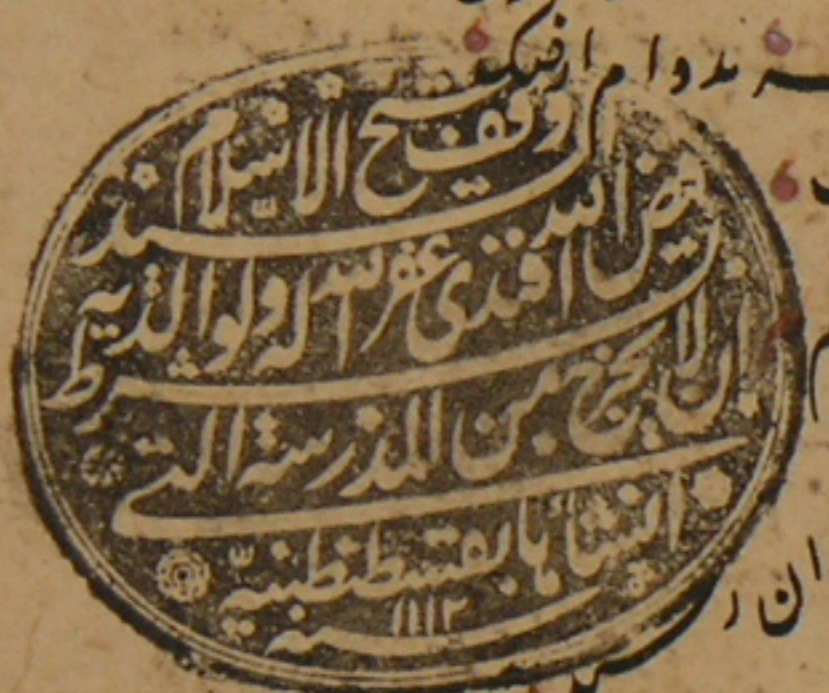 بدوام
وقف شيخ الاسلام السيد
فيض الله افندى غفر الله له ولوالديه
بشرط ان لا يخرج من المدرسة التى
انشأها بقسطنطنية
سنه ١١١٢
ان ر